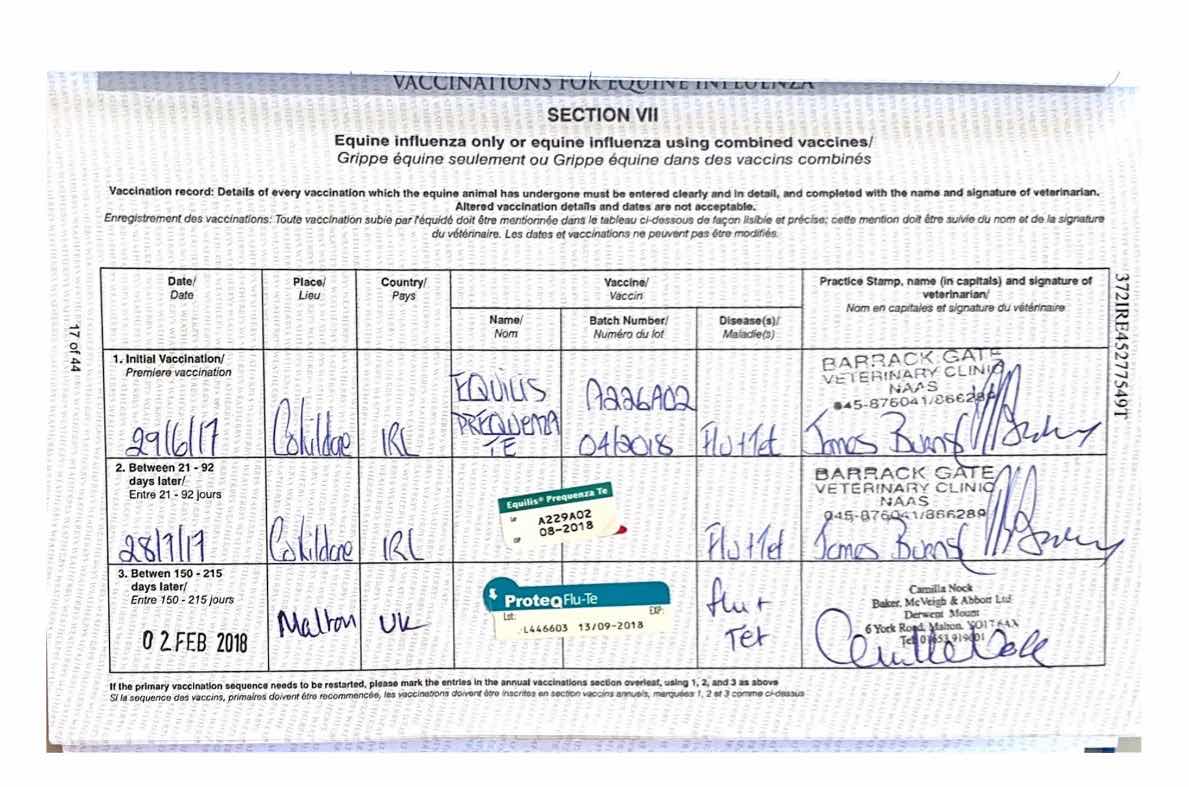 VACCINATIONS FOR EQUINE INFLUENZA
SECTION VII
Equine influenza only or equine influenza using combined vaccines/
Grippe équine seulement ou Grippe équine dans des vaccins combinés
Vaccination record: Details of every vaccination which the equine animal has undergone must be entered clearly and in detail, and completed with the name and signature of veterinarian.
Altered vaccination details and dates are not acceptable.
Enregistrement des vaccinations: Toute vaccination subie par l'équidé doit être mentionnée dans le tableau ci-dessous de façon lisible et précise; cette mention doit être suivie du nom et de la signature
du vétérinaire. Les dates et vaccinations ne peuvent pas être modifiés.
Date/
Date
Place/
Lieu
Country/
Pays
Vaccine/
Vaccin
Name/
Nom
Batch Number/
Numéro du lot
Disease(s)/
Maladie(s)
Practice Stamp, name (in capitals) and signature of
veterinarian/
Nom en capitales et signature du vétérinaire
1. Initial Vaccination/
Premiere vaccination
29/6/17
CoKildare
IRL
EQUILIS
PREQUENZA
TE
A226A02
04/2018
Flu+Tet
BARRACK GATE
VETERINARY CLINIC
NAAS
045-876041/866289
James Burns
2. Between 21 - 92
days later/
Entre 21 - 92 jours
28/7/17
CoKildare
IRL
Equilis® Prequenza Te
A229A02
08-2018
Flu+Tet
BARRACK GATE
VETERINARY CLINIC
NAAS
045-876041/866289
James Burns
3. Betwen 150 - 215
days later/
Entre 150 - 215 jours
02 FEB 2018
Malton
UK
ProteqFlu-Te
Lot: EXP:
L446603 13/09-2018
flu +
Tet
Camilla Nock
Baker, McVeigh & Abbott Ltd
Derwent Mount
6 York Road, Malton. YO17 6AX
Tel: 01653 919001
If the primary vaccination sequence needs to be restarted, please mark the entries in the annual vaccinations section overleaf, using 1, 2, and 3 as above
Si la sequence des vaccins, primaires doivent être recommencée, les vaccinations doivent être inscrites en section vaccins annuels, marquées 1, 2 et 3 comme ci-dessus
17 of 44
372IRE45277549T